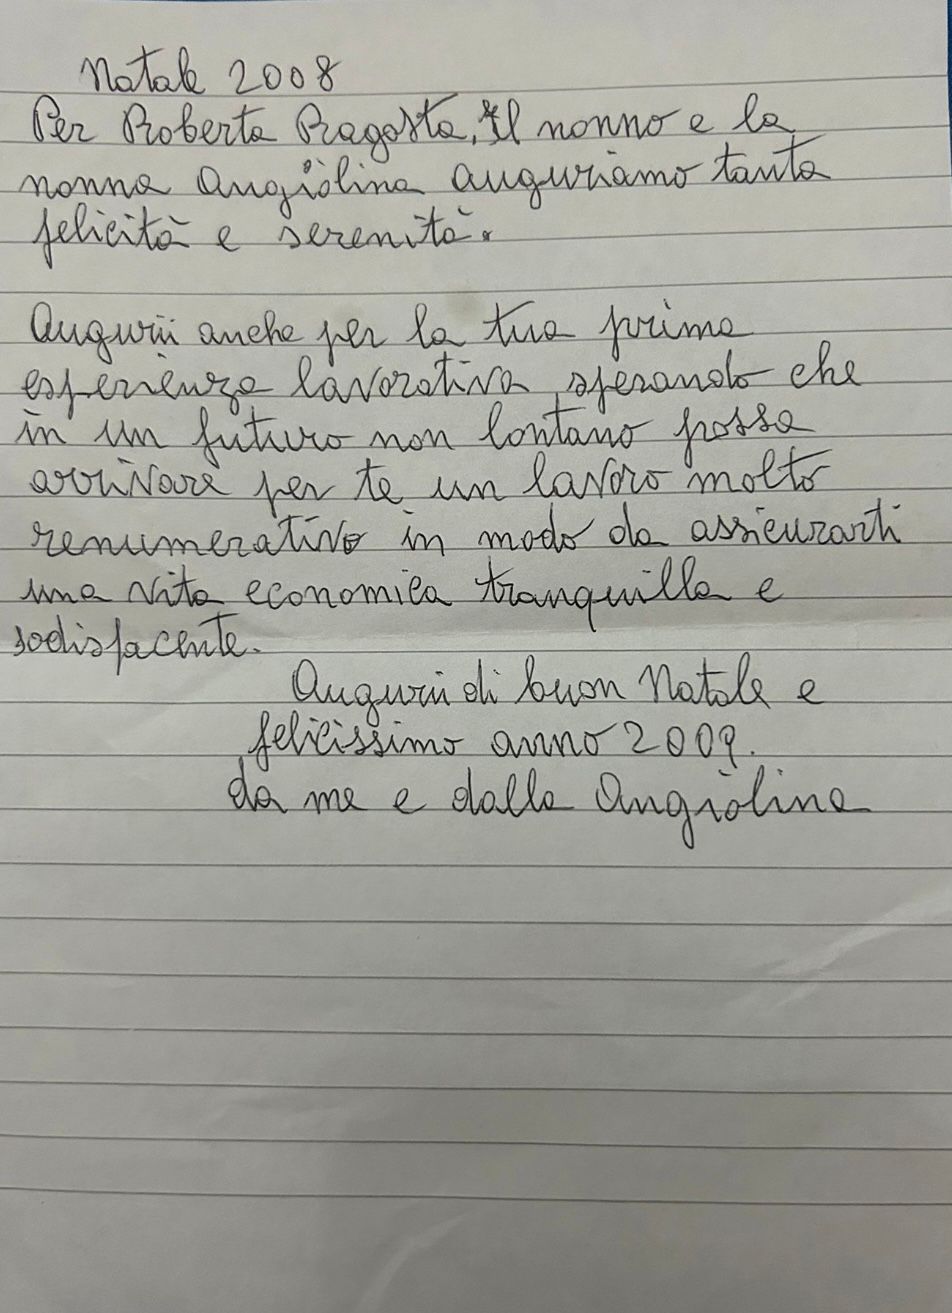 Natale 2008
Per Roberta Ragosta, Il nonno e la
nonna Angiolina auguriamo tanta
felicità e serenità.
Augurii anche per la tua prima
esperienza lavorativa, sperando che
in un futuro non lontano possa
arrivare per te un lavoro molto
renumerativo in modo da assicurarti
una vita economica tranquilla e
sodisfacente.
Augurii di buon Natale e
felicissimo anno 2009.
da me e dalla Angiolina